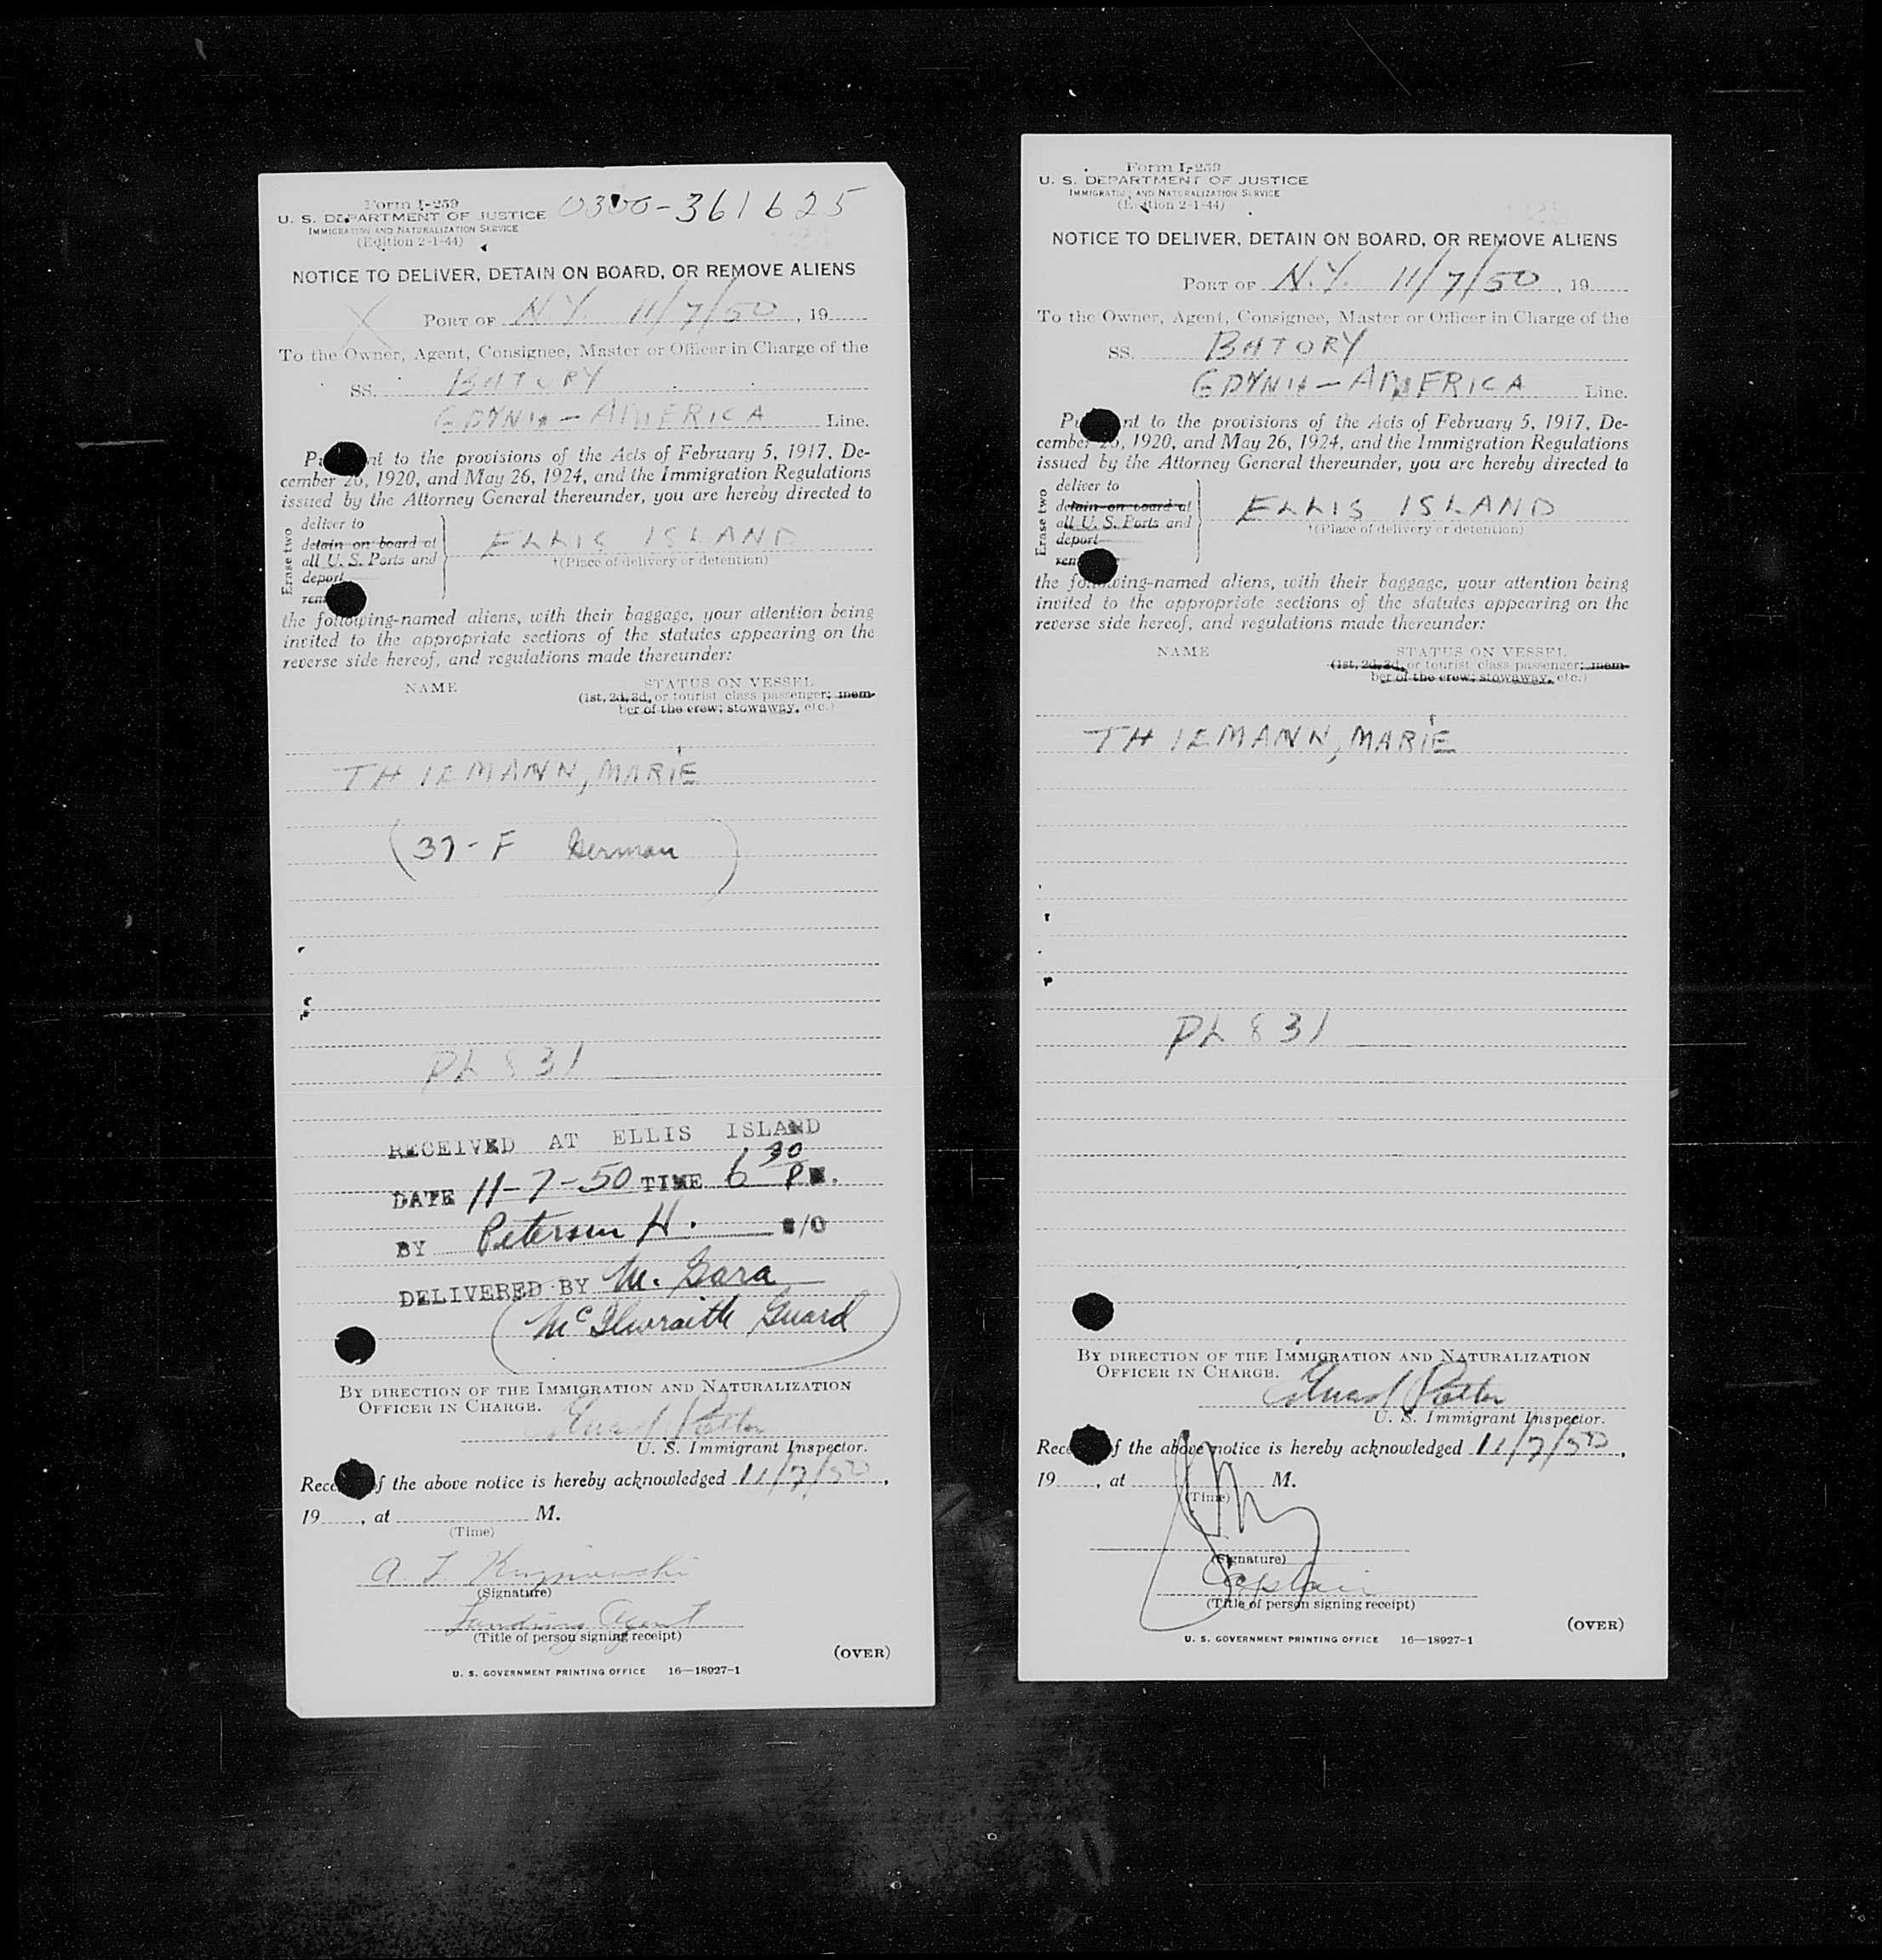 Form I-259
U. S. DEPARTMENT OF JUSTICE
0300-361625
IMMIGRATION AND NATURALIZATION SERVICE
(Edition 2-1-44)
NOTICE TO DELIVER, DETAIN ON BOARD, OR REMOVE ALIENS
X
PORT OF N.Y. 11/7/50, 19
To the Owner, Agent, Consignee, Master or Officer in Charge of the
SS. BATORY
GDYNIA-AMERICA Line.
nt to the provisions of the Acts of February 5, 1917, De-
cember 26, 1920, and May 26, 1924, and the Immigration Regulations
issued by the Attorney General thereunder, you are hereby directed to
Erase two
deliver to
detain on board at
all U. S. Ports and
deport
ELLIS ISLAND
†(Place of delivery or detention)
the following-named aliens, with their baggage, your attention being
invited to the appropriate sections of the statutes appearing on the
reverse side hereof, and regulations made thereunder:
NAME
STATUS ON VESSEL
(1st, 2d, 3d, or tourist class passenger; mem-
ber of the crew; stowaway, etc.)
THIEMANN, MARIE
(37-F German)
PL 831
RECEIVED AT ELLIS ISLAND
DATE 11-7-50 TIME 6 30 PM.
BY Petersen H. /O
DELIVERED BY M. Gara
(McIlwraith Guard)
BY DIRECTION OF THE IMMIGRATION AND NATURALIZATION
OFFICER IN CHARGE.
U. S. Immigrant Inspector.
of the above notice is hereby acknowledged 11/7/50,
19, at M.
(Time)
A. L.
(Signature)
Landing Agent
(Title of person signing receipt)
(OVER)
U. S. GOVERNMENT PRINTING OFFICE 16—18927-1
Form I-259
U. S. DEPARTMENT OF JUSTICE
IMMIGRATION AND NATURALIZATION SERVICE
(Edition 2-1-44)
NOTICE TO DELIVER, DETAIN ON BOARD, OR REMOVE ALIENS
PORT OF N.Y. 11/7/50, 19
To the Owner, Agent, Consignee, Master or Officer in Charge of the
SS. BATORY
GDYNIA-AMERICA Line.
nt to the provisions of the Acts of February 5, 1917, De-
cember 26, 1920, and May 26, 1924, and the Immigration Regulations
issued by the Attorney General thereunder, you are hereby directed to
Erase two
deliver to
detain on board at
all U. S. Ports and
deport
ELLIS ISLAND
†(Place of delivery or detention)
the following-named aliens, with their baggage, your attention being
invited to the appropriate sections of the statutes appearing on the
reverse side hereof, and regulations made thereunder:
NAME
STATUS ON VESSEL
(1st, 2d, 3d, or tourist class passenger; mem-
ber of the crew; stowaway, etc.)
THIEMANN, MARIE
PL 831
BY DIRECTION OF THE IMMIGRATION AND NATURALIZATION
OFFICER IN CHARGE.
U. S. Immigrant Inspector.
of the above notice is hereby acknowledged 11/7/50,
19, at M.
(Time)
(Signature)
Captain
(Title of person signing receipt)
(OVER)
U. S. GOVERNMENT PRINTING OFFICE 16—18927-1